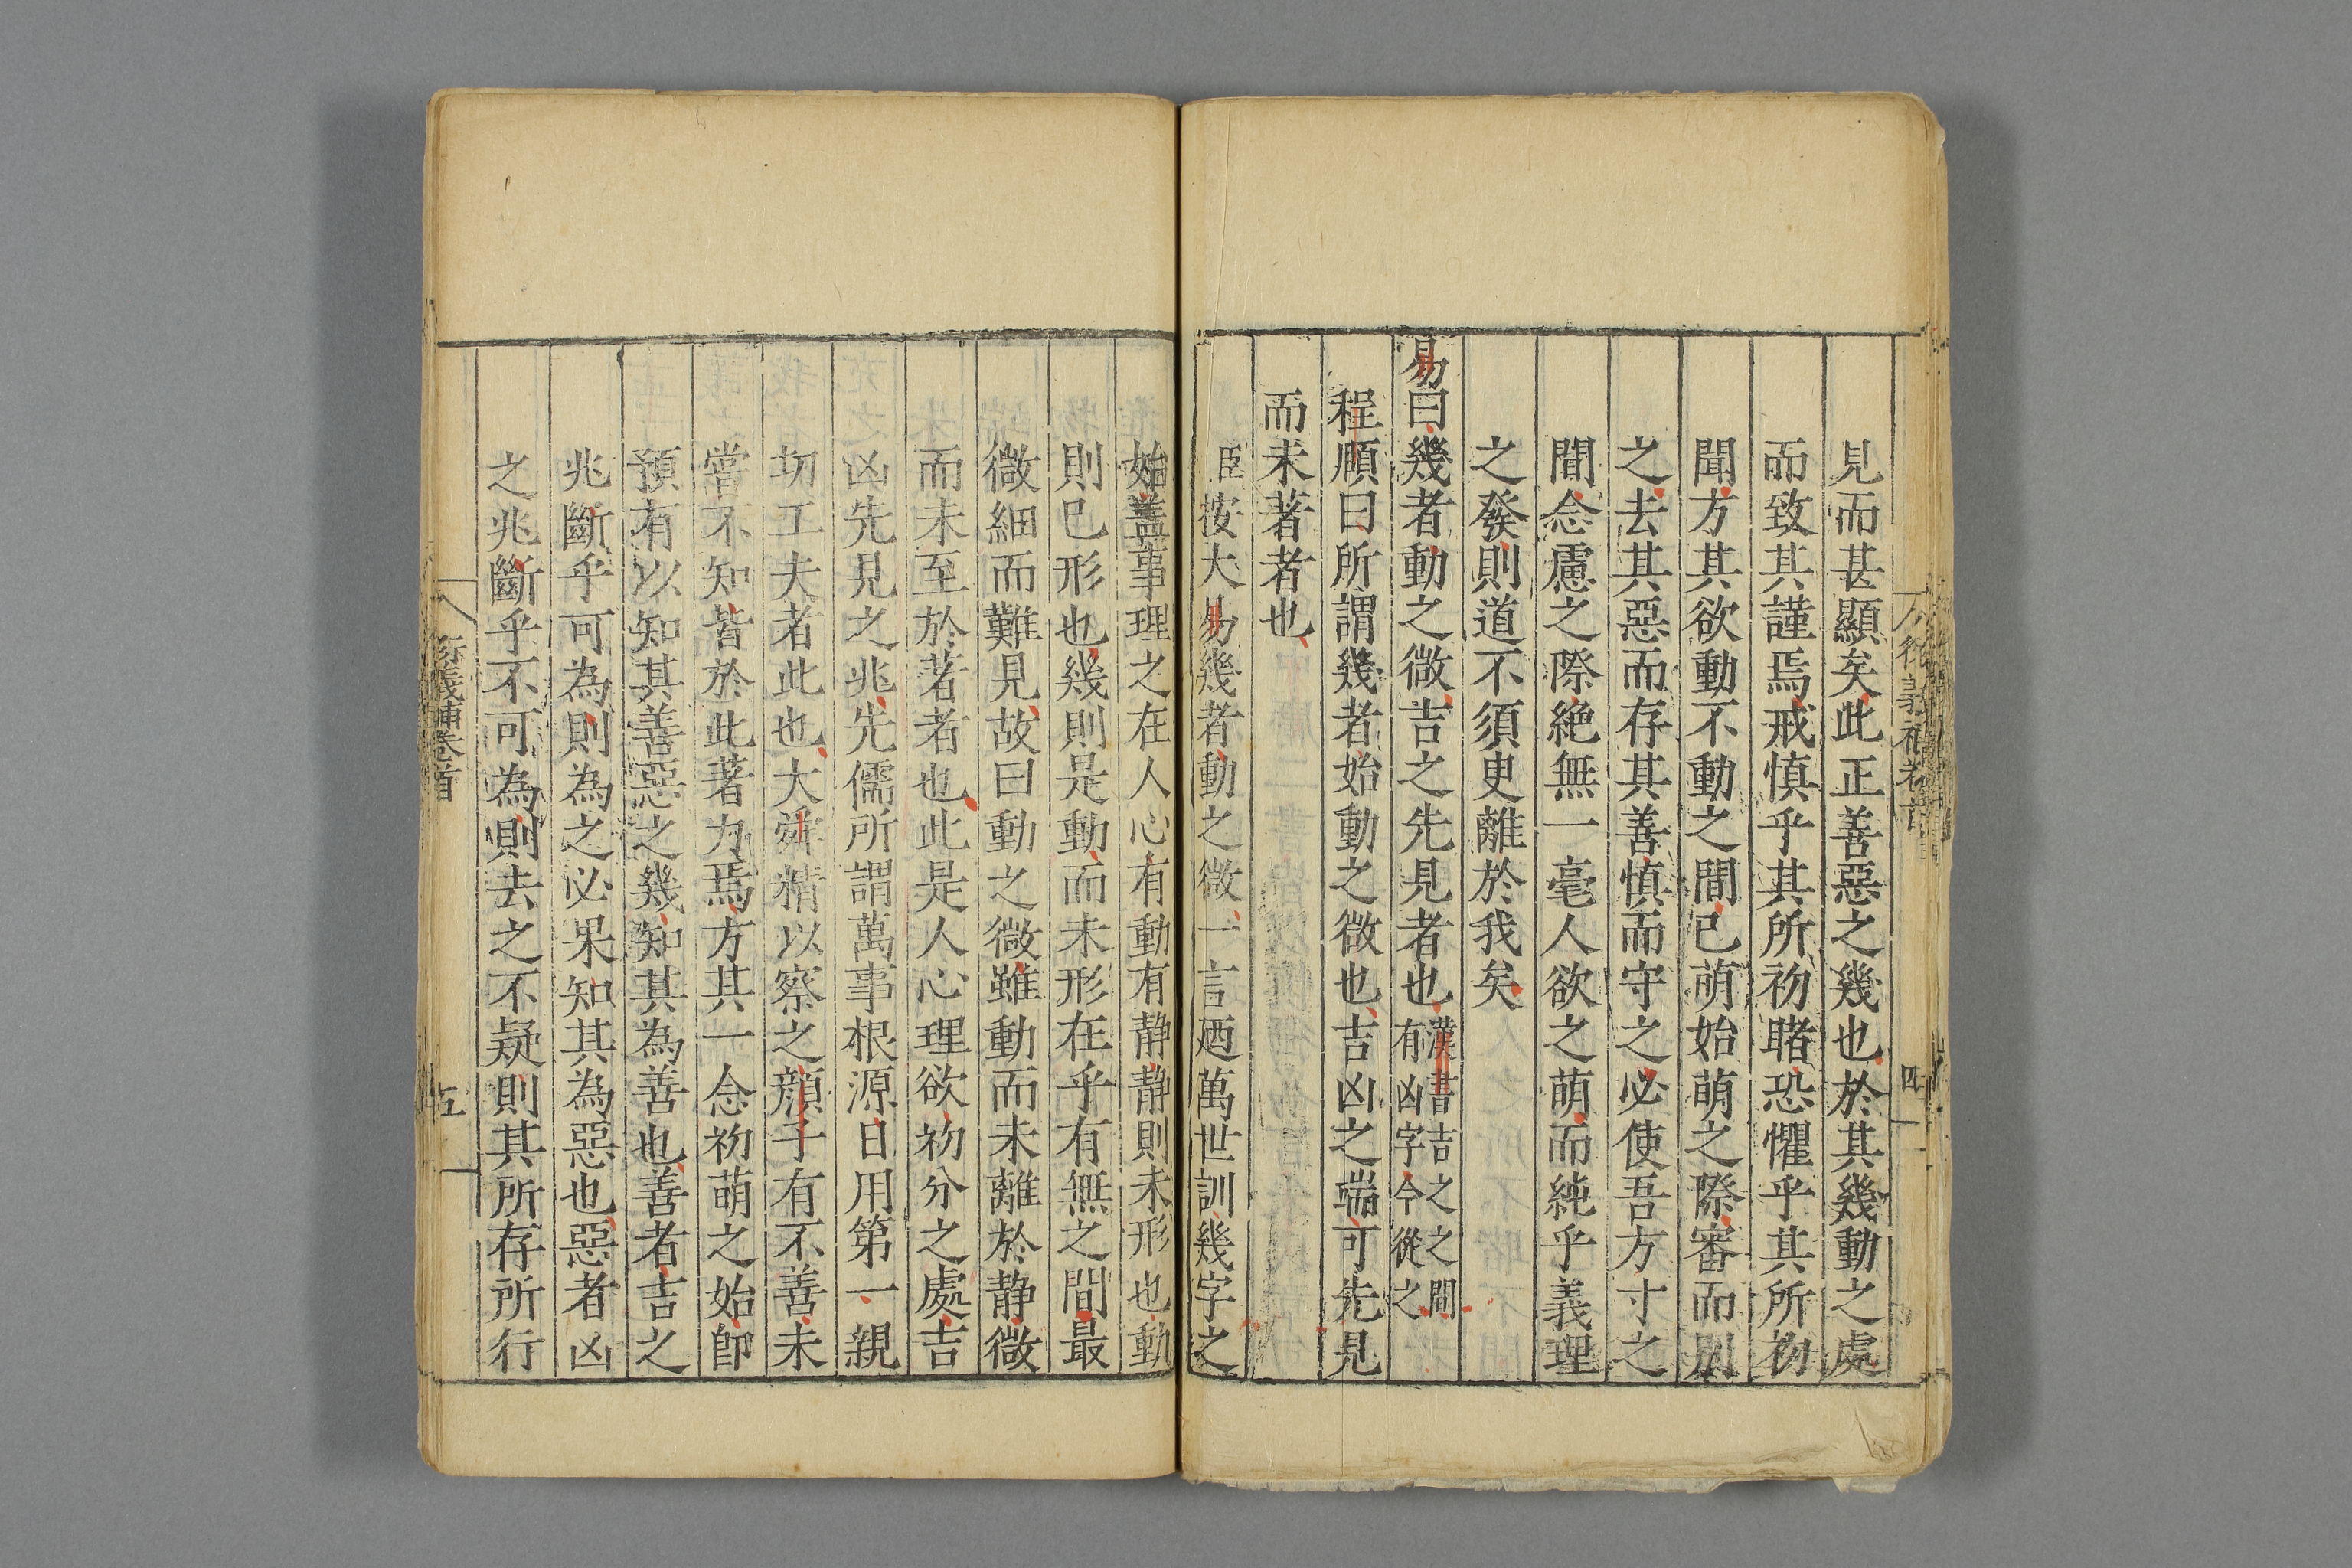 見而甚顯矣此正善惡之幾也於其幾動之處
而致其謹焉戒慎乎其所初睹恐懼乎其所初
聞方其欲動不動之間已萌始萌之際審而别
之去其惡而存其善慎而守之必使吾方寸之
間念慮之際絶無一毫人欲之萌而純乎義理
之發則道不須史離於我矣
易曰幾者動之微吉之先見者也漢書吉之之間
有凶字今從之
程頤曰所謂幾者始動之微也吉凶之端可先見
而未著者也
臣按大易幾者動之微一言廼萬世訓幾字之
始盖事理之在人心有動有静静則未形也動
則已形也幾則是動而未形在乎有無之間最
微細而難見故曰動之微雖動而未離於静微
而未至於著者也此是人心理欲初分之處吉
凶先見之兆先儒所謂萬事根源日用第一親
切工夫者此也大舜精以察之顔子有不善未
嘗不知皆於此著力焉方其一念初萌之始卽
預有以知其善惡之幾知其為善也善者吉之
兆斷乎可為則為之必果知其為惡也惡者凶
之兆斷乎不可為則去之不疑則其所存所行
衍義補卷首
四
衍義補卷首
五